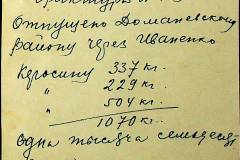 Отпущено Доманевскому
району через Иваненко
Керосину 337 кг.
" 229 кг.
" 504 кг.
1070 кг.
одна тысяча семьдесят